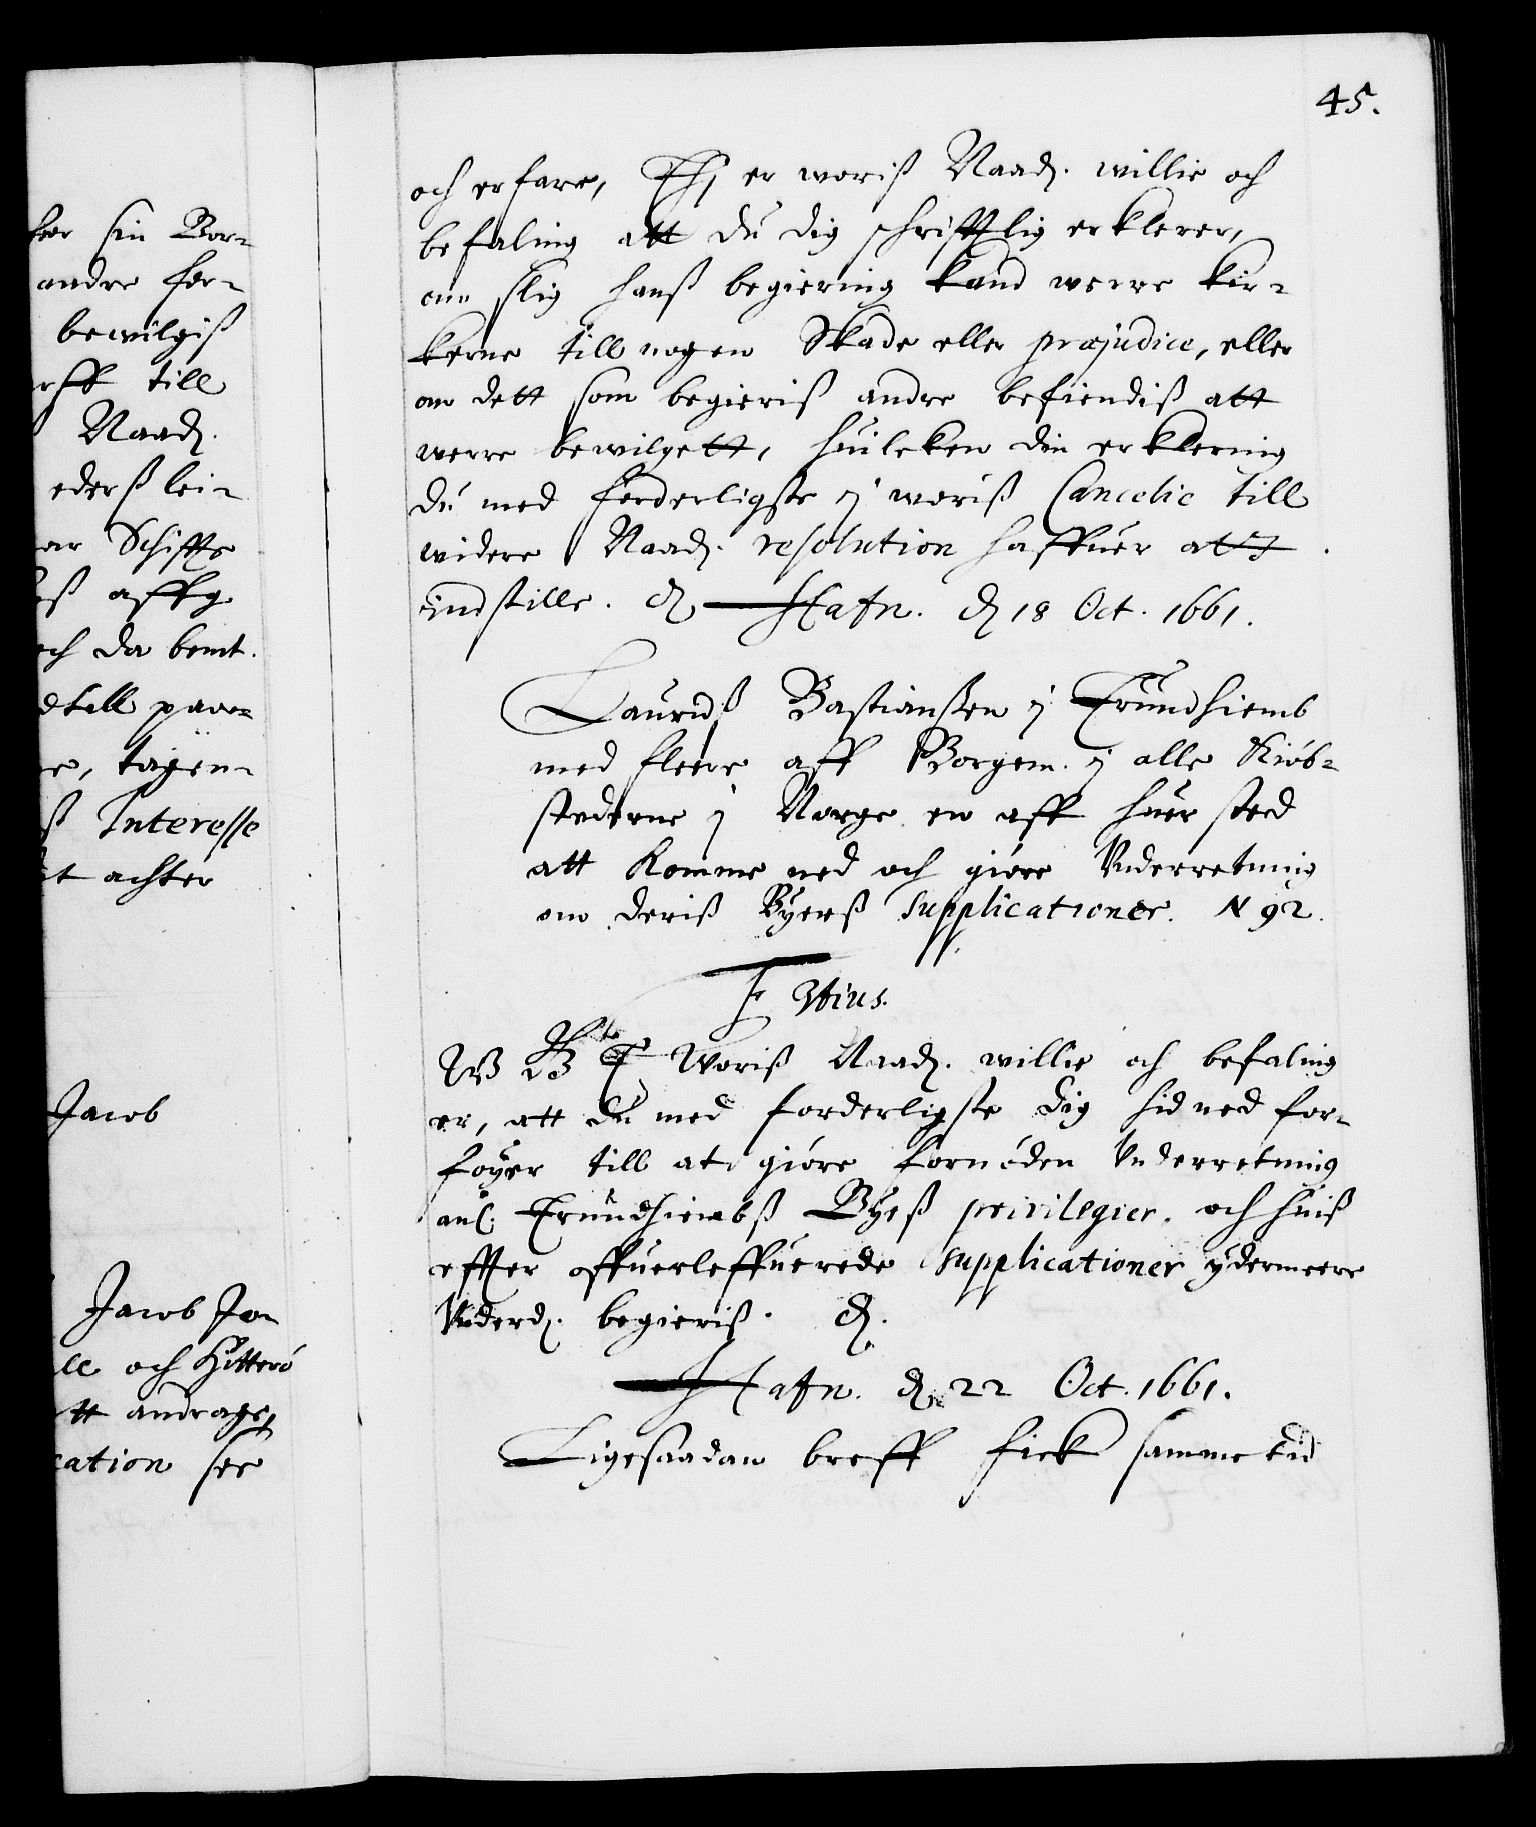 45.
och erfare, Thj er woriß Naad. willie och
befaling att du dig schrifftlig erklerer,
om slig hanß begiering kand werre kir-
kerne till nogen Skade eller præjudice, eller
om dett som begieriß andre befiendiß att
werre bewilgett, huilcken din erklering
du med forderligste j woriß Cancelie till
widere Naad. resolution haffuer att
indstille. Hafn. d 18 Oct. 1661.
Lauridß Bastianßen j Trundhiemb
med fleere aff Borgem. j alle Kiób-
stederne j Norge en aff huer sted
att komme ned och gióre Vnderretning
om deriß Byerß supplicationer. N 92.
F 3tius.
Woriß Naad. willie och befaling
er, att du med forderligste dig hid ned for-
foyer till at gióre fornóden Vnderretning
anl. Trundhiembß Byeß privilegier. och huiß
effter offuerleffuerede supplicationer ydermeere
Vnderd. begieriß.
Hafn. d 22 Oct. 1661.
Ligesaadan breff fick samme tid
sin Bor-
andre for-
bewilgiß
till
Naad.
ederß lei-
Schiffs
affg
da bemt.
till
tagen-
Interesse
achter
Jacob
Jacob
och Hitteró
andrage,
cation see